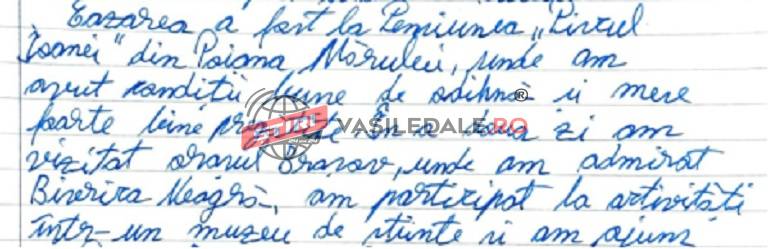 Cazarea a fost la Pensiunea „Livul
Ioanei” din Poiana Mărului, unde am
avut condiții bune de odihnă și mese
foarte bine pr În a doua zi am
VASILEDALE.RO
vizitat orașul Brașov, unde am admirat
Biserica Neagră, am participat la activități
într-un muzeu de științe și am ajuns